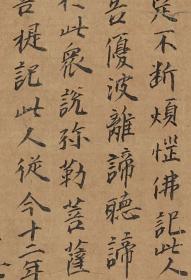 不断煩惱佛記此人
告優波離諦聽諦
此衆說弥勒菩薩
提記此人從今十二年